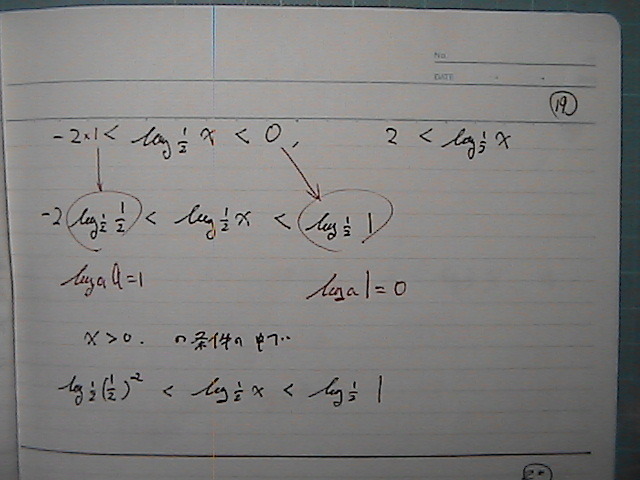 NO.
DATE
19
-2×1 < log_{1/2} x < 0, 2 < log_{1/2} x
-2 log_{1/2} 1/2 < log_{1/2} x < log_{1/2} 1
log_a a = 1 log_a 1 = 0
x > 0. の条件の中で..
log_{1/2} (1/2)^{-2} < log_{1/2} x < log_{1/2} 1